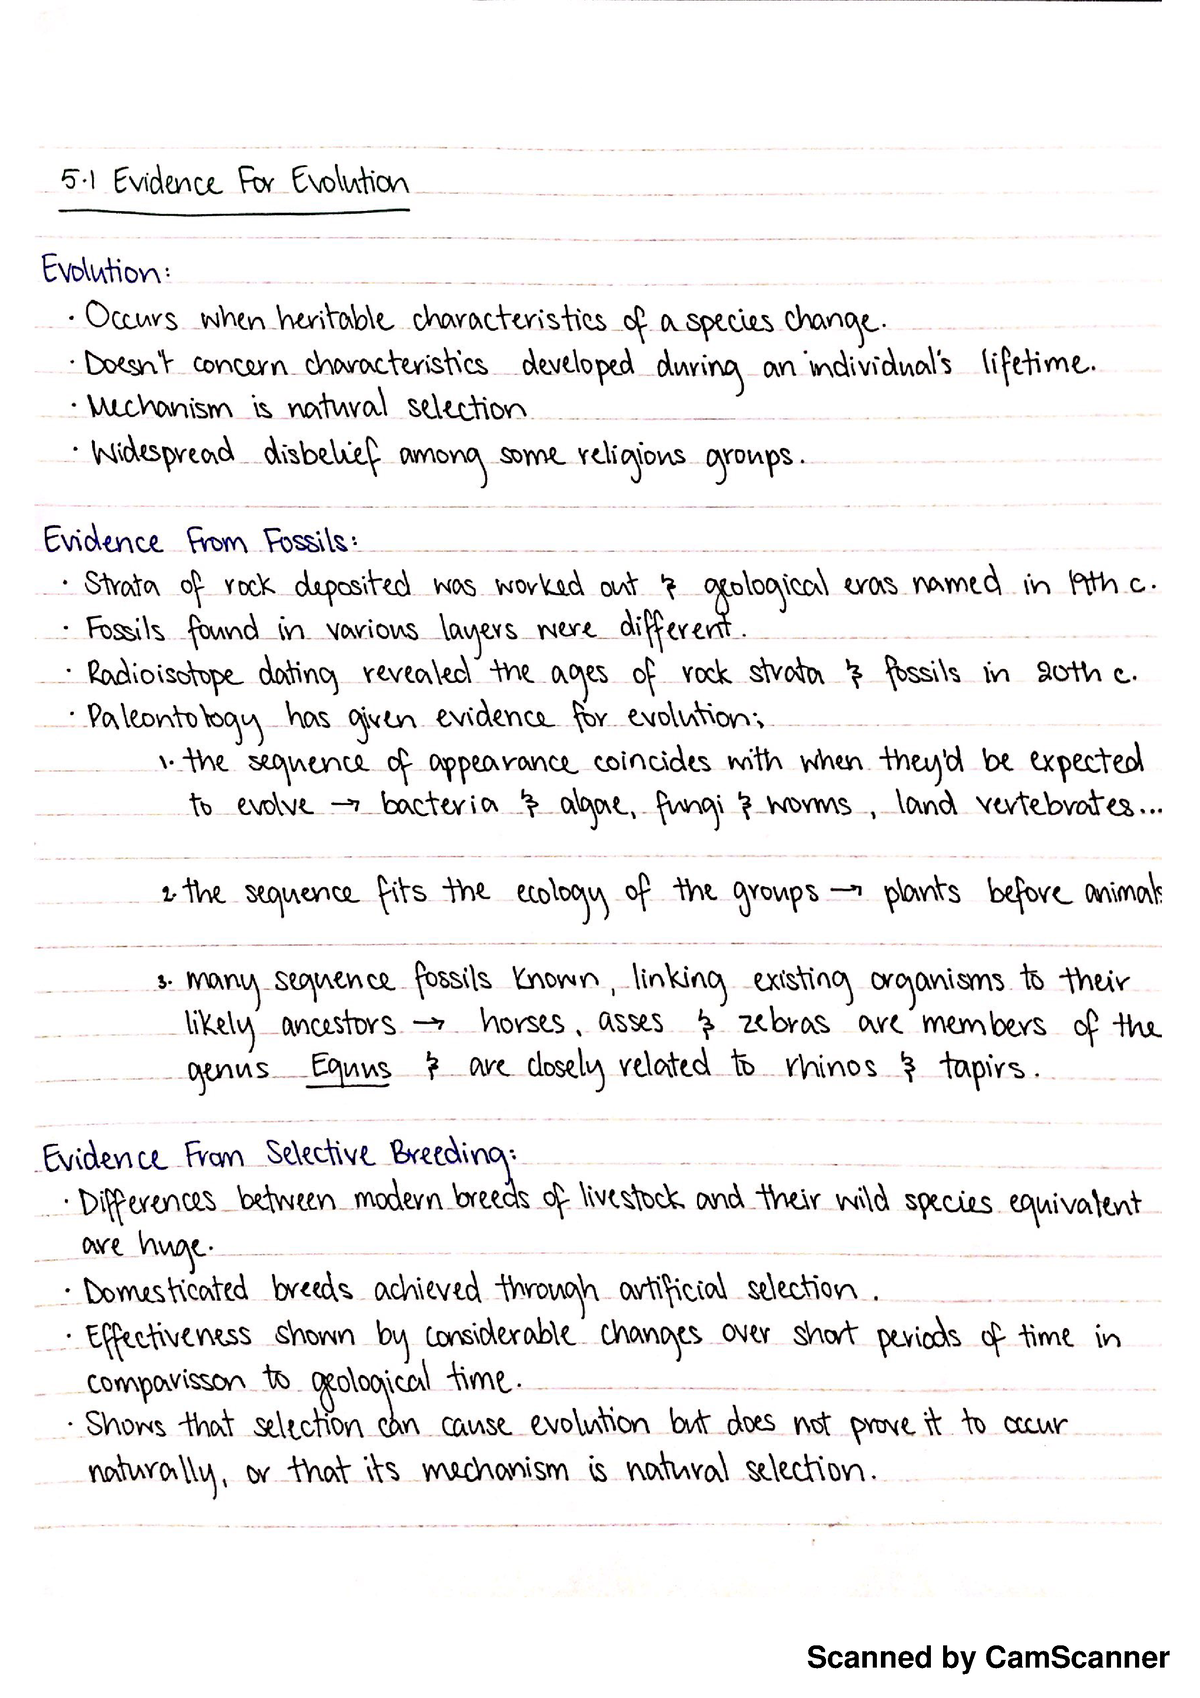 5.1 Evidence For Evolution
Evolution:
· Occurs when heritable characteristics of a species change.
· Doesn't concern characteristics developed during an individual's lifetime.
· Mechanism is natural selection
· Widespread disbelief among some religions groups.
Evidence From Fossils:
· Strata of rock deposited was worked out & geological eras named in 19th c.
· Fossils found in various layers were different.
· Radioisotope dating revealed the ages of rock strata & fossils in 20th c.
· Paleontology has given evidence for evolution;
1. the sequence of appearance coincides with when they'd be expected
to evolve → bacteria & algae, fungi & worms, land vertebrates...
2. the sequence fits the ecology of the groups → plants before animals
3. many sequence fossils known, linking existing organisms to their
likely ancestors → horses, asses & zebras are members of the
genus Equus & are closely related to rhinos & tapirs.
Evidence From Selective Breeding:
· Differences between modern breeds of livestock and their wild species equivalent
are huge.
· Domesticated breeds achieved through artificial selection.
· Effectiveness shown by considerable changes over short periods of time in
comparisson to geological time.
· Shows that selection can cause evolution but does not prove it to occur
naturally, or that its mechanism is natural selection.
Scanned by CamScanner